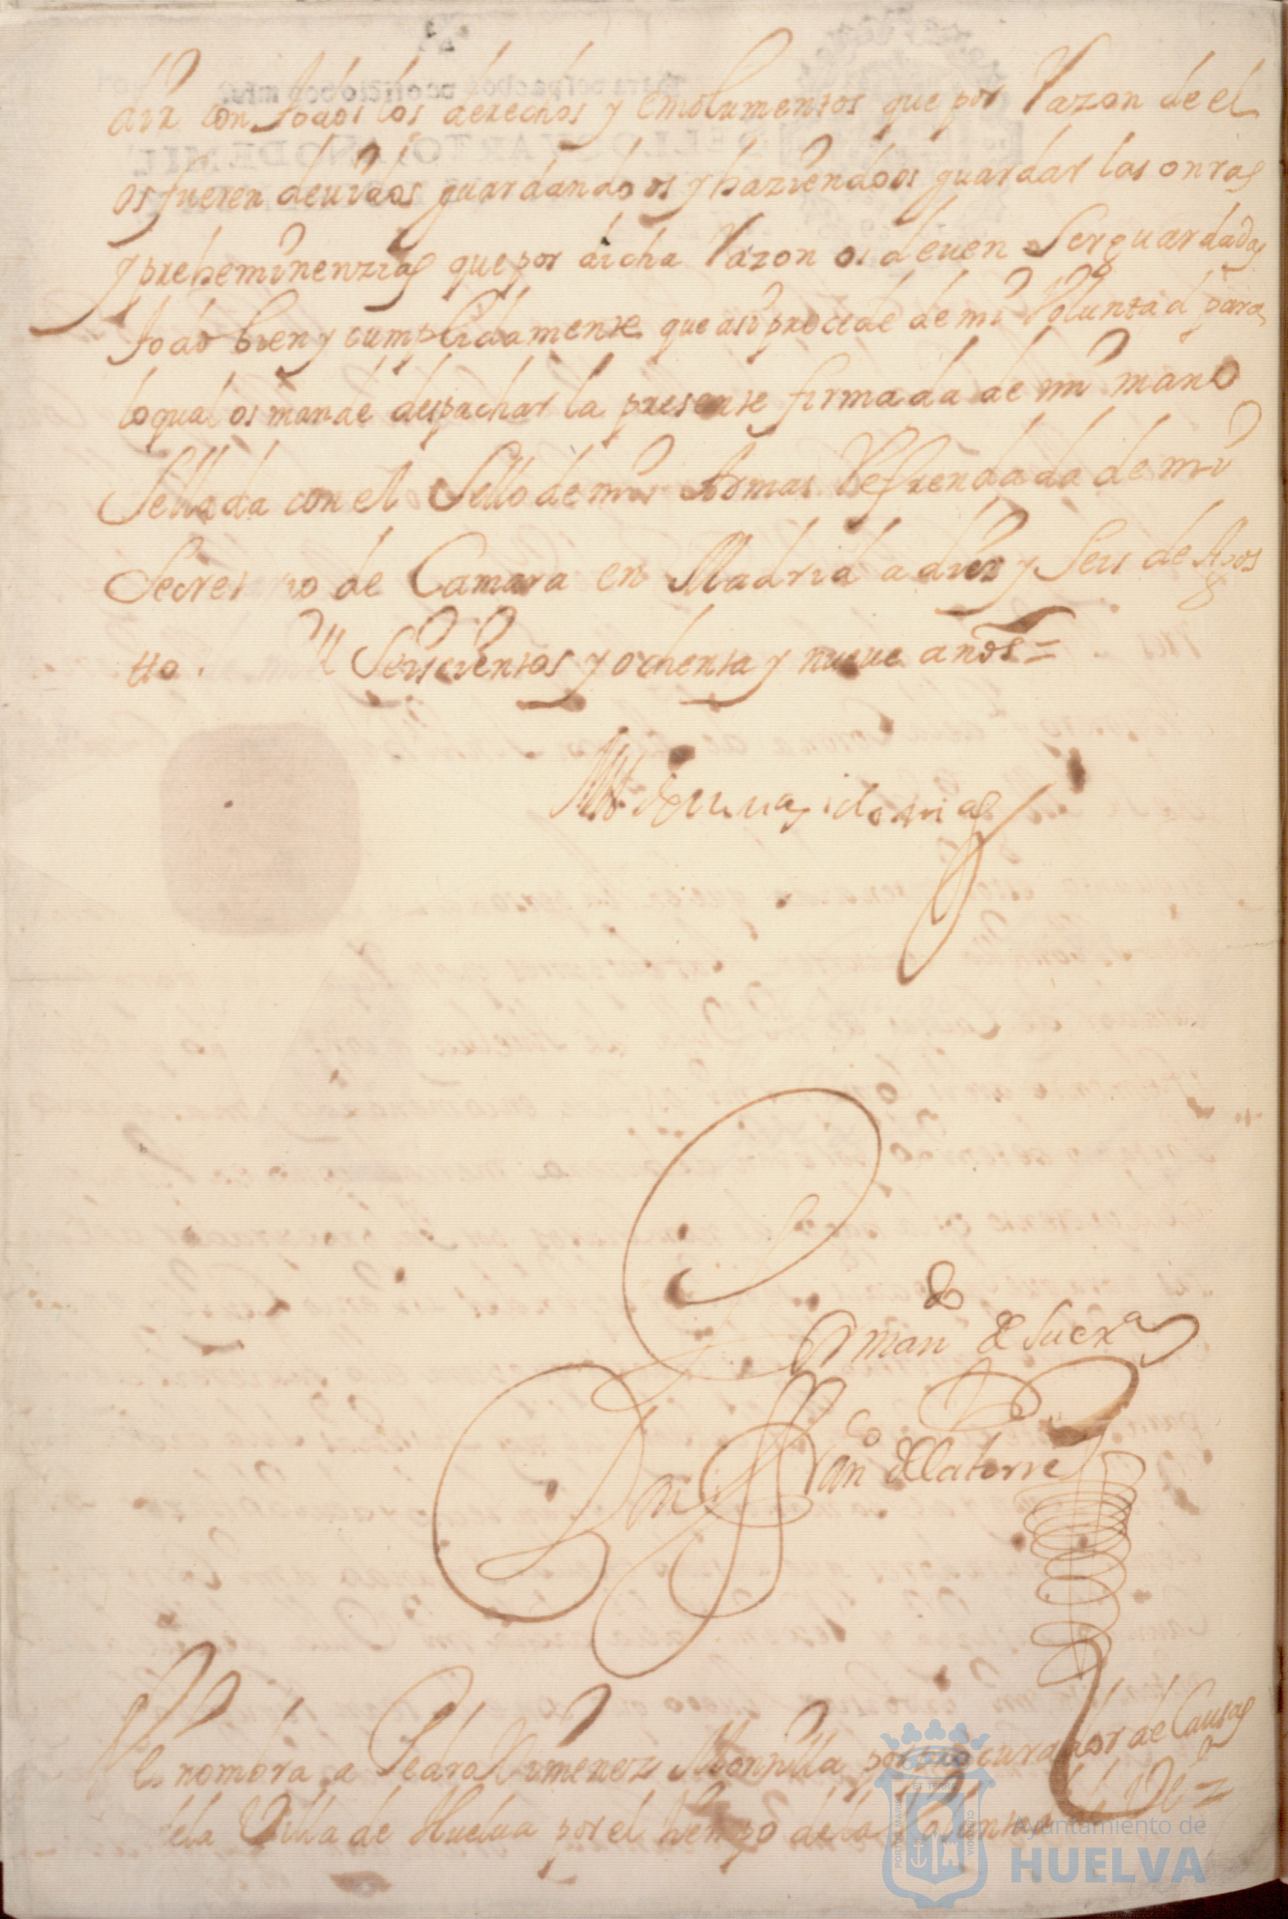 dir con todos los derechos y emolumentos que por Razon de el
os fueren deuidos guardandoos y haziendoos guardar las onrras
y preheminenzias que por dicha Razon os deuen ser guardadas
todo bien y cumplidamente que asi procede de mi Voluntad para
lo qual os mandé despachar la presente firmada de mi mano
Sellada con el Sello de mis Armas Refrendada de mi
Secretario de Camara en Madrid a diez y Seis de Agos
tto. Mil Seiscientos y ochenta y nueue años =
Por mando de su exa
Don Franco de la torre
Se nombra a Pedro Ximenez Monnilla por procurador de Causas
de la Villa de Huelua por el tiempo de la Voluntad de V. Exa
Ayuntamiento de
HUELVA